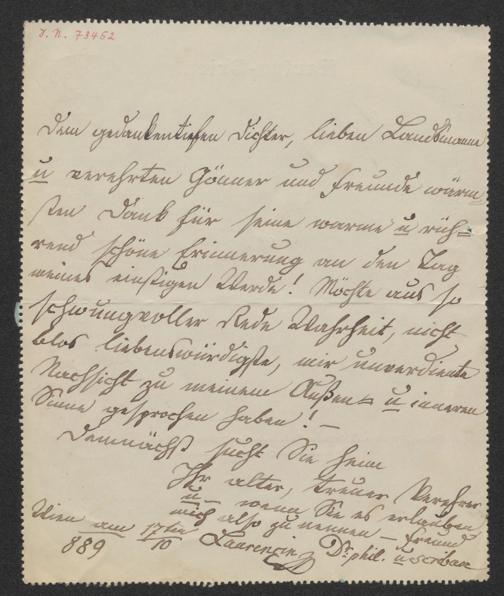 I. N. 73462
Dem gedankentiefen Dichter, lieben Landsmanne
u verehrten Gönner und Freunde wärm
sten Dank für seine warme u rüh=
rend schöne Erinnerung an den Tag
meines einstigen Werde! Möchte aus so
schwungvoller Rede Wahrheit, nicht
blos liebenswürdigste, mir unverdiente
Nachsicht zu meinem Außen- u inneren
Sinne gesprochen haben! –
Demnächst sucht Sie heim
Ihr alter, treuer Verehrer
u – wenn Sie es erlauben
mich also zu nennen – Freund
Wien am 17ten/10 Laurencin Dr. phil. u
889